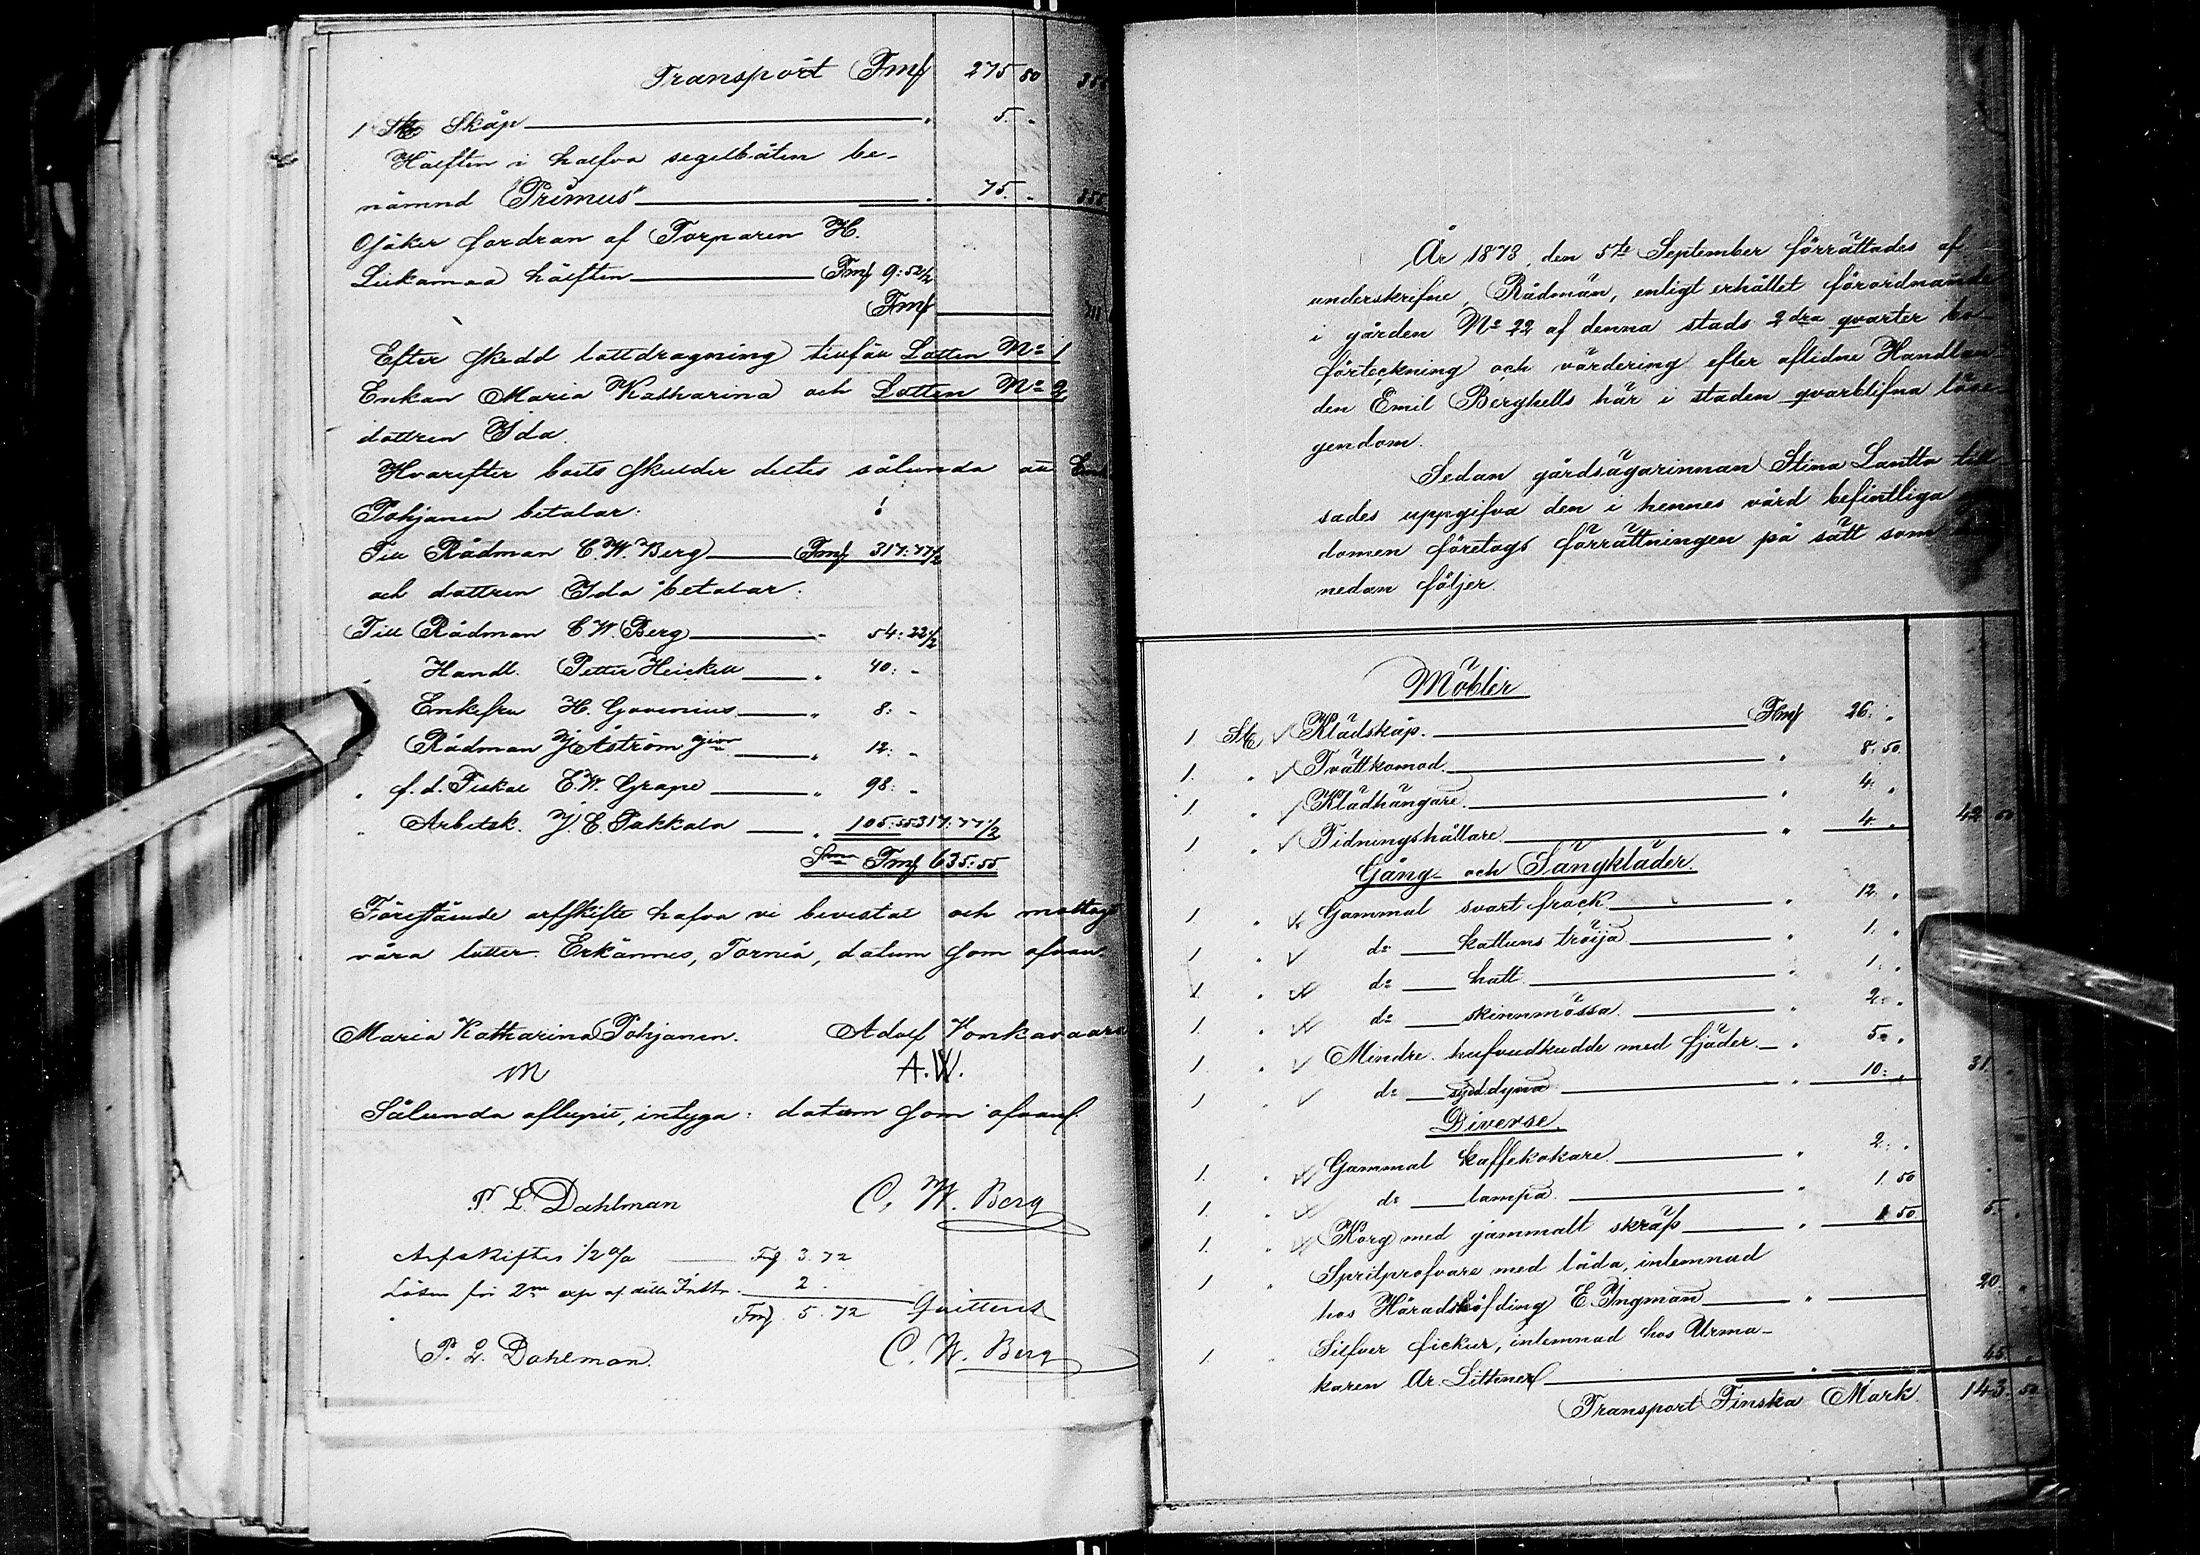 Transport Fmk 275 80
1 St. Skåp 5. "
Hälften i halfva segelbåten be-
nämnd "Primus" 75. "
Osäker fordran af Torparen H.
Liikamaa hälften Fmk 9:52 1/2
Fmk
Efter skedd lottdragning tillföll Lotten No 1
Enkan Maria Katharina och Lotten No 2
dottren Ida.
Hvarefter boets skulder deltes sålunda att Enk
Pohjanen betalar:
Till Rådman C. W. Berg Fmk 317:77 1/2
och dottren Ida betalar:
Till Rådman C W. Berg " 54:22 1/2
" Handl. Petter Heickell " 40: -
Enkefru H. Govenius " 8: -
" Rådman J Åström " 12: -
" f. d. Fiskal E. W. Grape " 98: -
" Arbetsk. J. E. Pakkala " 105:55 317:77 1/2
Sma Fmk 635:55
Förestående arfskifte hafva vi bevistat och mottagit
våra lotter. Erkännes, Torneå, datum som ofvan.
Maria Katharina Pohjanen. Adolf Vonkavaara
M A. W.
Sålunda aflupit, intyga: datum som ofvan.
P. L. Dahlman C. W. Berg
Arfskiftes 1/2 % Fmk 3. 72
Lösen för 2ne exp af detta Instr. 2 .
Fmk 5. 72 Qvitterat
P. L. Dahlman. C. W. Berg
År 1873, den 5te September förrättades af
underskrifne, Rådman, enligt erhållet förordnande
i gården No 22 af denna stads 2dra qvarter bo-
förteckning och värdering efter aflidne Handlan-
den Emil Berghells här i staden qvarblifna löse-
gendom.
Sedan gårdsägarinnan Stina Lantto till-
sades uppgifva den i hennes vård befintliga
domen företogs förrättningen på sätt som
nedan följer.
Möbler
1 St. Klädskåp. Fmk 26. "
1. " Tvättkomod " 8. 50.
1. " Klädhängare. " 4. "
1 " Tidningshållare. " 4. " 42 50
Gång- och Sängkläder.
1 " Gammal svart frack " 12. "
1 " do kattuns tröija " 1. "
1. " do hatt " 1. "
1. " do skinnmössa. " 2. "
1 " Mindre hufvudkudde med fjäder. " 5. "
1 " do dyna " 10. " 31. "
Diverse.
1. " Gammal kaffekokare. " 2. "
1. " do lampa. " 1. 50
1. " Korg med gammalt skräp " 1 50 5. "
1 " Spritprofvare med låda, inlemnad
hos Häradshöfding E. Ingman " 20. "
1. " Silfver fickur, inlemnad hos Urma-
karen Ar. Littner " 45. "
Transport Finska Mark 143. 50